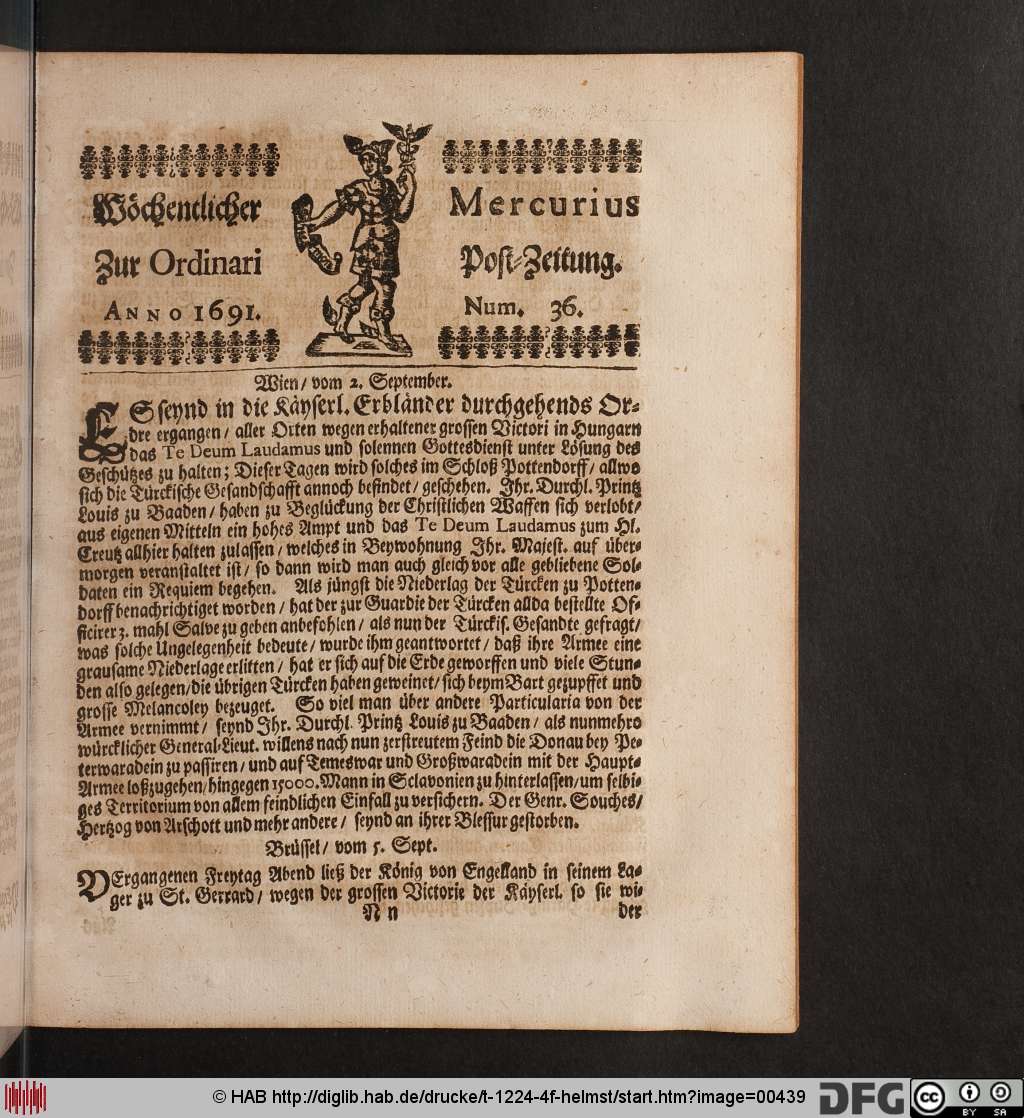 Wöchentlicher Mercurius
Zur Ordinari Post-Zeitung.
ANNO 1691. Num. 36.
Wien / vom 2. September.
ES seynd in die Käyserl. Erbländer durchgehends Or-
dre ergangen / aller Orten wegen erhaltener grossen Victori in Hungarn
das Te Deum Laudamus und solennen Gottesdienst unter Lösung des
Geschützes zu halten; Dieser Tagen wird solches im Schloß Pottendorff / allwo
sich die Türckische Gesandschafft annoch befindet / geschehen. Ihr. Durchl. Printz
Louis zu Baaden / haben zu Beglückung der Christlichen Waffen sich verlobt /
aus eigenen Mitteln ein hohes Ampt und das Te Deum Laudamus zum Hl.
Creutz allhier halten zulassen / welches in Beywohnung Ihr. Majest. auf über-
morgen veranstaltet ist / so dann wird man auch gleich vor alle gebliebene Sol-
daten ein Requiem begehen. Als jüngst die Niederlag der Türcken zu Potten-
dorff benachrichtiget worden / hat der zur Guardie der Türcken allda bestellte Of-
ficirer 3. mahl Salve zu geben anbefohlen / als nun der Türckis. Gesandte gefragt /
was solche Ungelegenheit bedeute / wurde ihm geantwortet / daß ihre Armee eine
grausame Niederlage erlitten / hat er sich auf die Erde geworffen und viele Stun-
den also gelegen / die übrigen Türcken haben geweinet / sich beym Bart gezupffet und
grosse Melancoley bezeuget. So viel man über andere Particularia von der
Armee vernimmt / seynd Ihr. Durchl. Printz Louis zu Baaden / als nunmehro
würcklicher General-Lieut. willens nach nun zerstreutem Feind die Donau bey Pe-
terwaradein zu passiren / und auf Temeswar und Großwaradein mit der Haupt-
Armee loßzugehen / hingegen 15000. Mann in Sclavonien zu hinterlassen / um selbi-
ges Territorium von allem feindlichen Einfall zu versichern. Der Genr. Souches /
Hertzog von Arschott und mehr andere / seynd an ihrer Blessur gestorben.
Brüssel / vom 5. Sept.
VErgangenen Freytag Abend ließ der König von Engelland in seinem La-
ger zu St. Gerrard / wegen der grossen Victorie der Käyserl. so sie wi-
N n der
© HAB http://diglib.hab.de/drucke/t-1224-4f-helmst/start.htm?image=00439
DFG
cc
BY SA